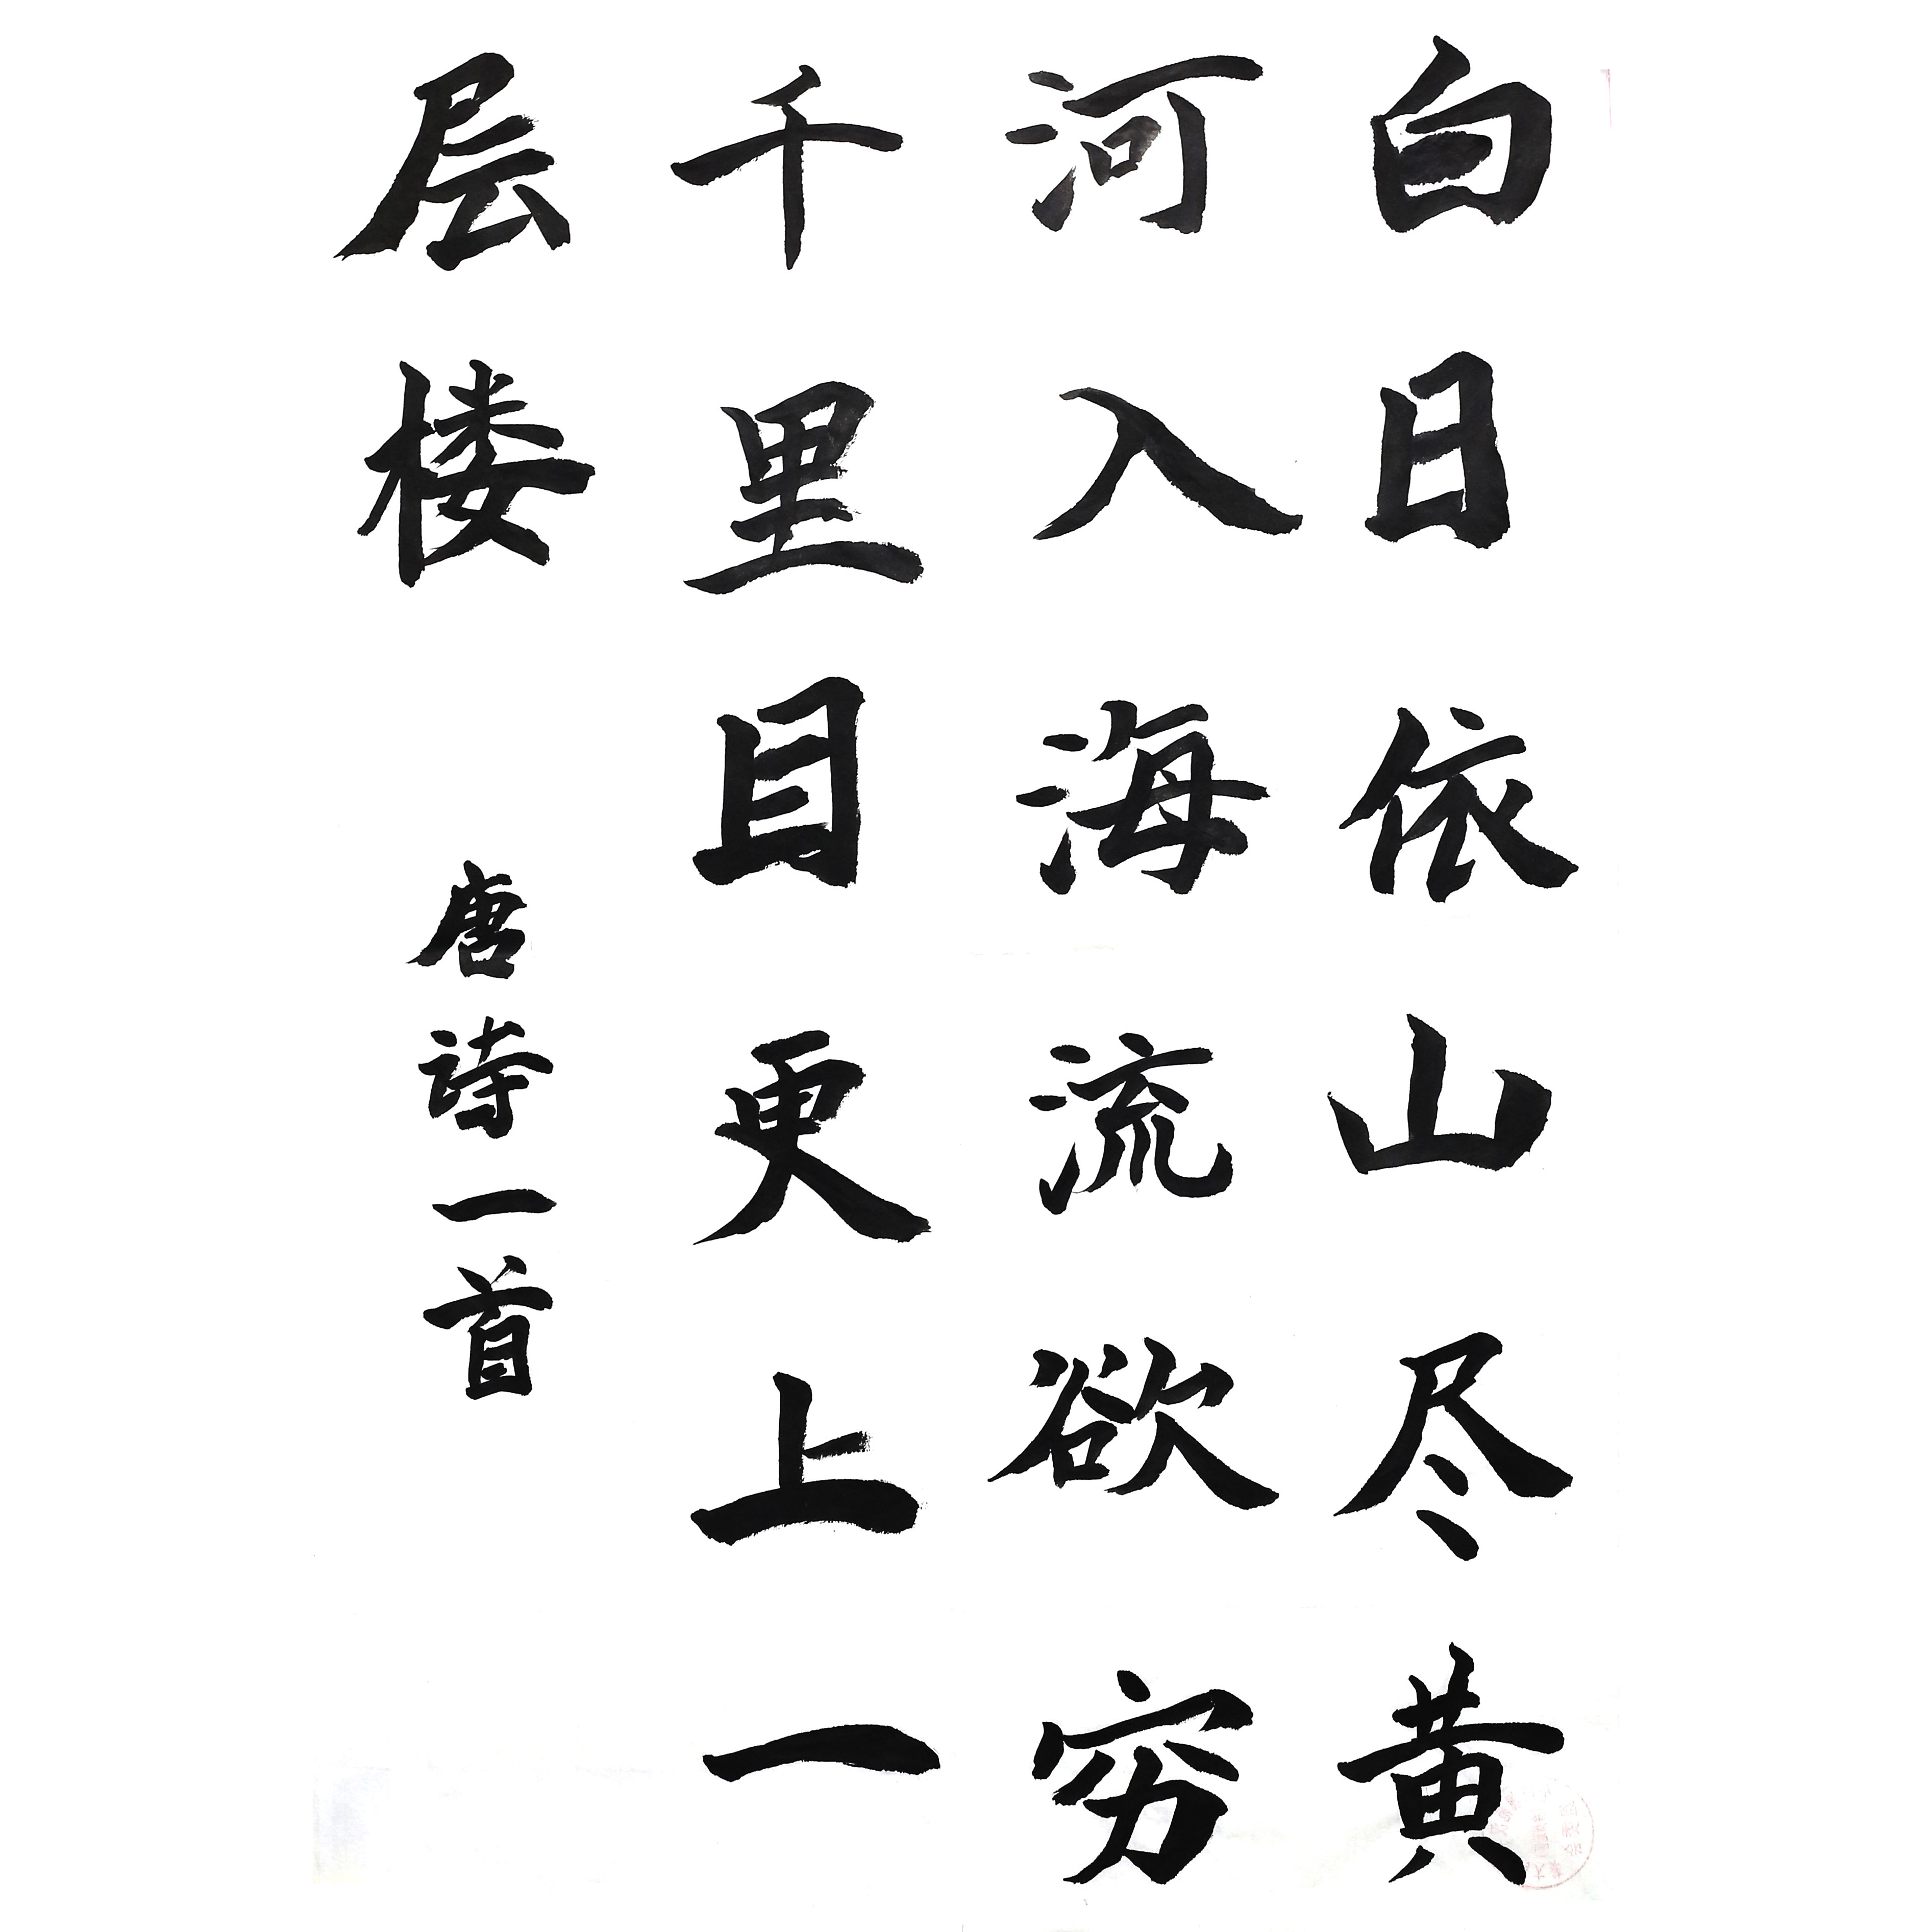 白日依山尽黄
河入海流欲穷
千里目更上一
层楼
唐诗一首